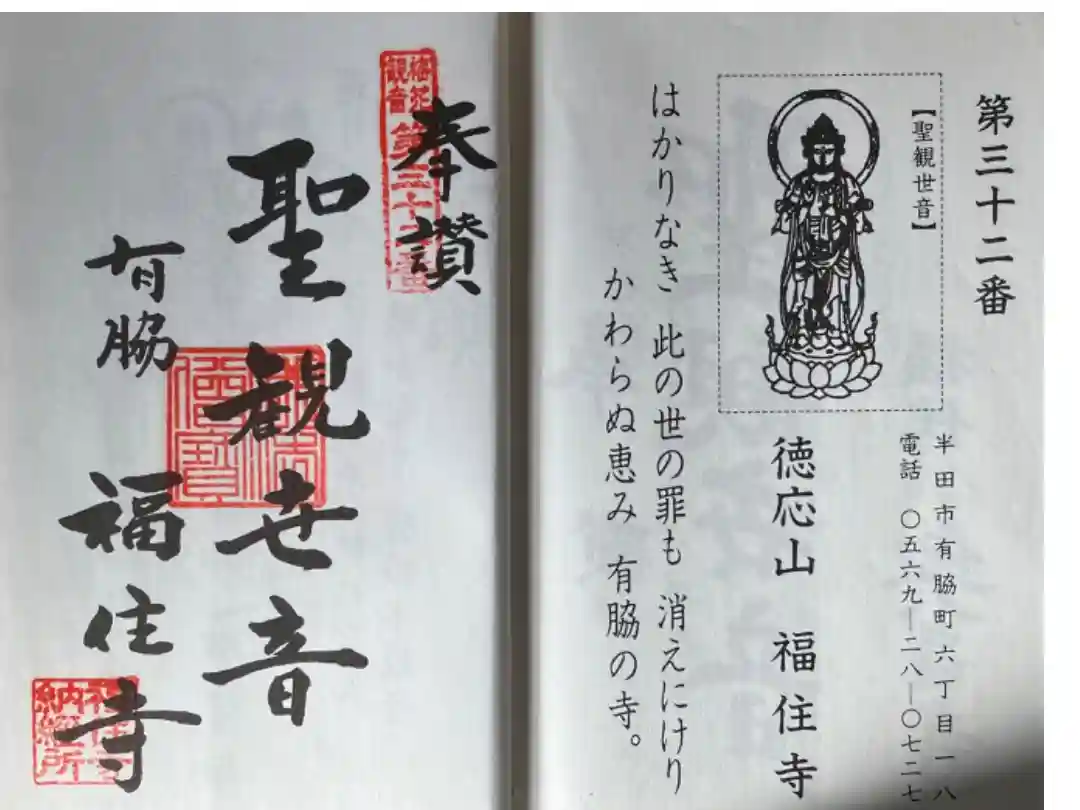 第三十二番
【聖観世音】
半田市有脇町六丁目一八
電話 〇五六九―二八―〇七二七
徳応山 福住寺
はかりなき 此の世の罪も 消えにけり
かわらぬ恵み 有脇の寺。
奉讃
第三十二番
聖観世音
有脇 福住寺
納経所